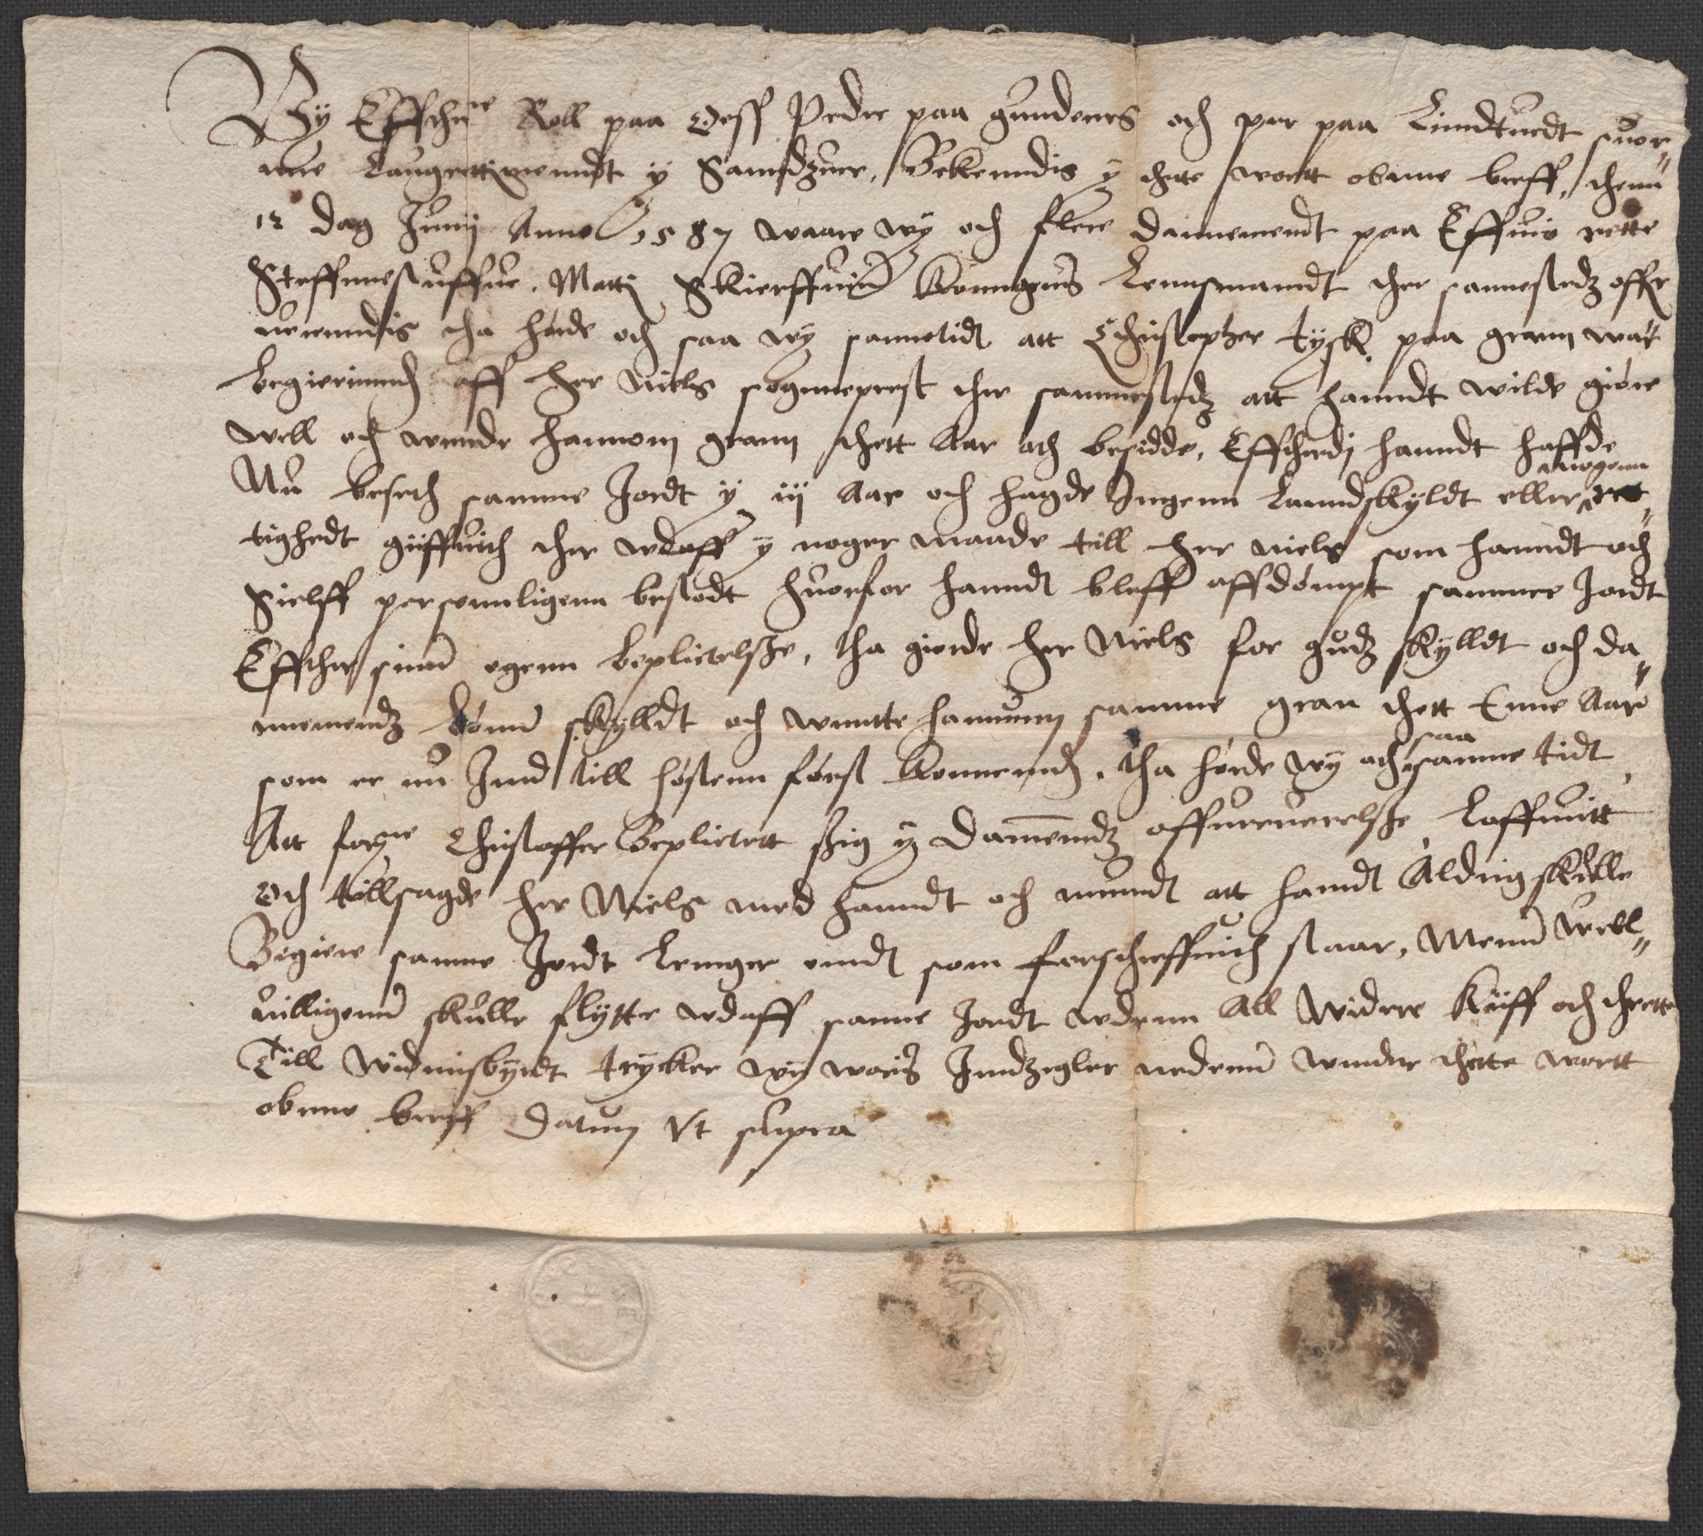 Wy Effschne Roll paa Øeff Peder paa gundenes och per paa Lundtuedt suor„
nne Laugrettismendt y Samdzuer, Bekenndis y thette wortt obnne breff, thenn
12 dag Junij Anno 1587 waare wy och flere Dannemendt paa Effuio rette
Steffnnestuffue, Matti Skierffuinn konngens Lennsmandt ther sammestedz offr
uerenndis tha hørde och saa wy samme tidt att Christopher tysk paa grann war
begierinndh aff her Niels sogneprest ther sammestedz att hanndt wilde giøre
well och wnnde hannom grann thett Aar ath besidde, Effterdj hanndt haffde
Nu beseth samme Jordt y iij Aar och hagde Ingenn Lanndskyldt eller annogenn ret„
tighedt giiffuith ther vdaff y noger maade till her Niels som hanndt och
Sielff personnligenn bestodt huorfor hanndt bleff affdømpt samme Jordt
Effther sinn egenn beplictelsse, tha giorde her Niels for gudz skylldt och da„
nnemendz bønn skylldt och wnntte hannum samme gran thett Enne Aar
som er nu Ind till høstenn først kommendh, tha hørde wy och saa samme tidt
Att forne Christoffer Beplictett ssig y Dannemendz offuerverelsse, Loffuitt
Och tillsagde her Niels med hanndt och munndt att handt Aldrig skulle
Begiere samme Jordt Lenger endt som forschreffuith staar, Menn Well„
uilligenn skulle flytte vdaff samme Jordt vdenn All Widere kiiff och thrette
Till Widnisbyrdt trycker wy woris Indzegler nedenn wnder thette wortt
obnne breff Datum Vt supra